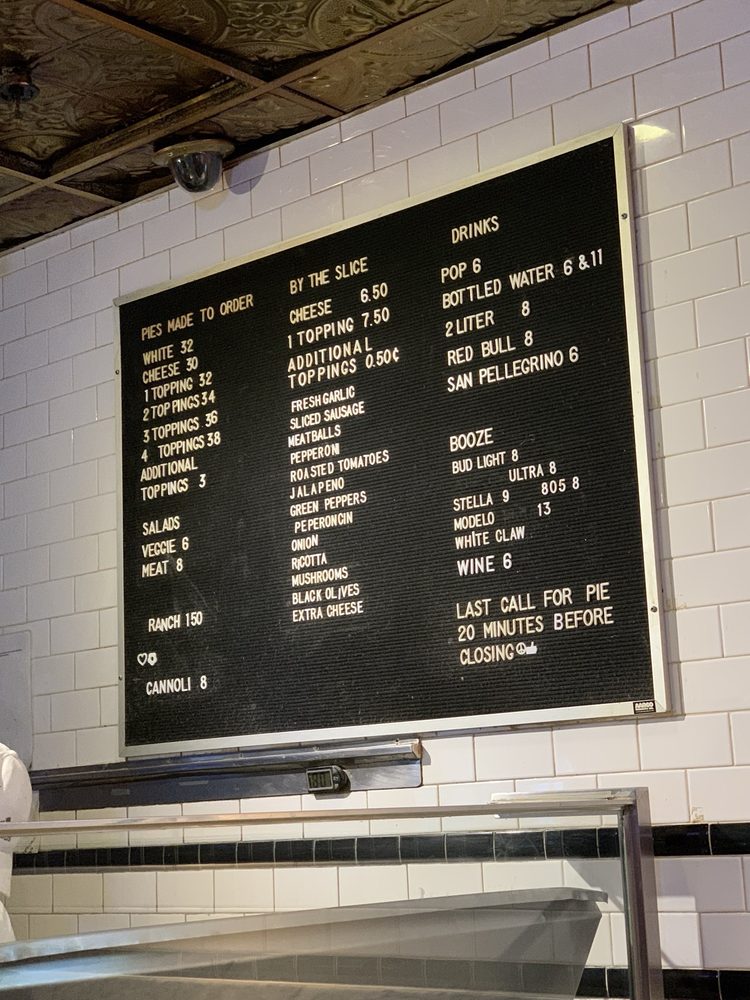 PIES MADE TO ORDER
WHITE 32
CHEESE 30
1 TOPPING 32
2 TOPPINGS 34
3 TOPPINGS 36
4 TOPPINGS 38
ADDITIONAL
TOPPINGS 3
SALADS
VEGGIE 6
MEAT 8
RANCH 150
CANNOLI 8
BY THE SLICE
CHEESE 6.50
1 TOPPING 7.50
ADDITIONAL
TOPPINGS 0.50¢
FRESH GARLIC
SLICED SAUSAGE
MEATBALLS
PEPPERONI
ROASTED TOMATOES
JALAPENO
GREEN PEPPERS
PEPERONCIN
ONION
RICOTTA
MUSHROOMS
BLACK OLIVES
EXTRA CHEESE
DRINKS
POP 6
BOTTLED WATER 6 &11
2 LITER 8
RED BULL 8
SAN PELLEGRINO 6
BOOZE
BUD LIGHT 8
ULTRA 8
STELLA 9 805 8
MODELO 13
WHITE CLAW
WINE 6
LAST CALL FOR PIE
20 MINUTES BEFORE
CLOSING